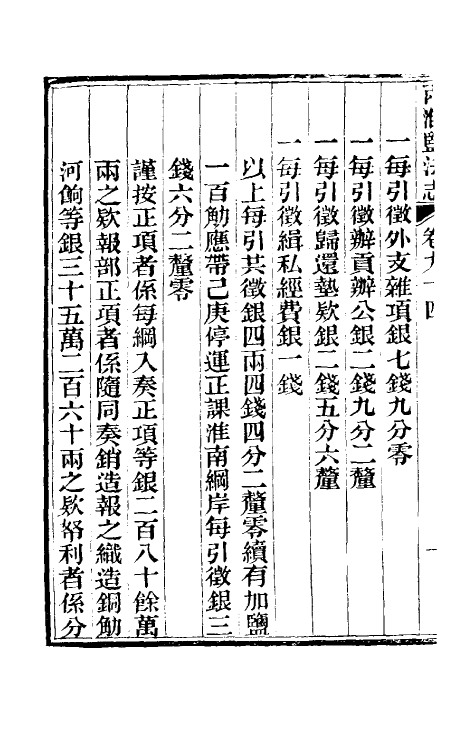 兩淮鹽法志 卷九十四 一
一每引徵外支雜項銀七錢九分零
一每引徵辦貢辦公銀二錢九分二釐
一每引徵歸還墊欵銀二錢五分六釐
一每引徵緝私經費銀一錢
以上每引共徵銀四兩四錢四分二釐零續有加鹽
一百觔應帶己庚停運正課淮南綱岸每引徵銀三
錢六分二釐零
謹按正項者係每綱入奏正項等銀二百八十餘萬
兩之欵報部正項者係隨同奏銷造報之織造銅觔
河餉等銀三十五萬二百六十兩之欵帑利者係分